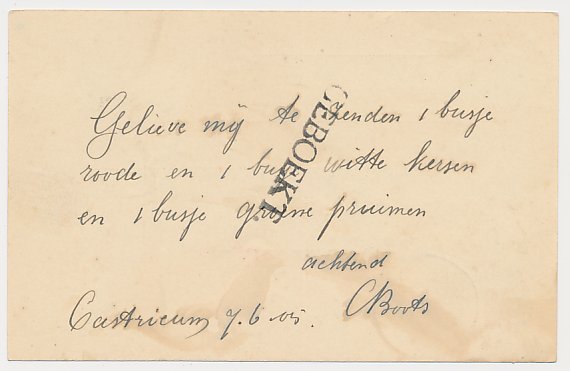 Gelieve mij te zenden 1 busje
roode en 1 bus witte kersen
en 1 busje groene pruimen
achtend
CBoots
Castricum 7.6.05.
GEBOEKT